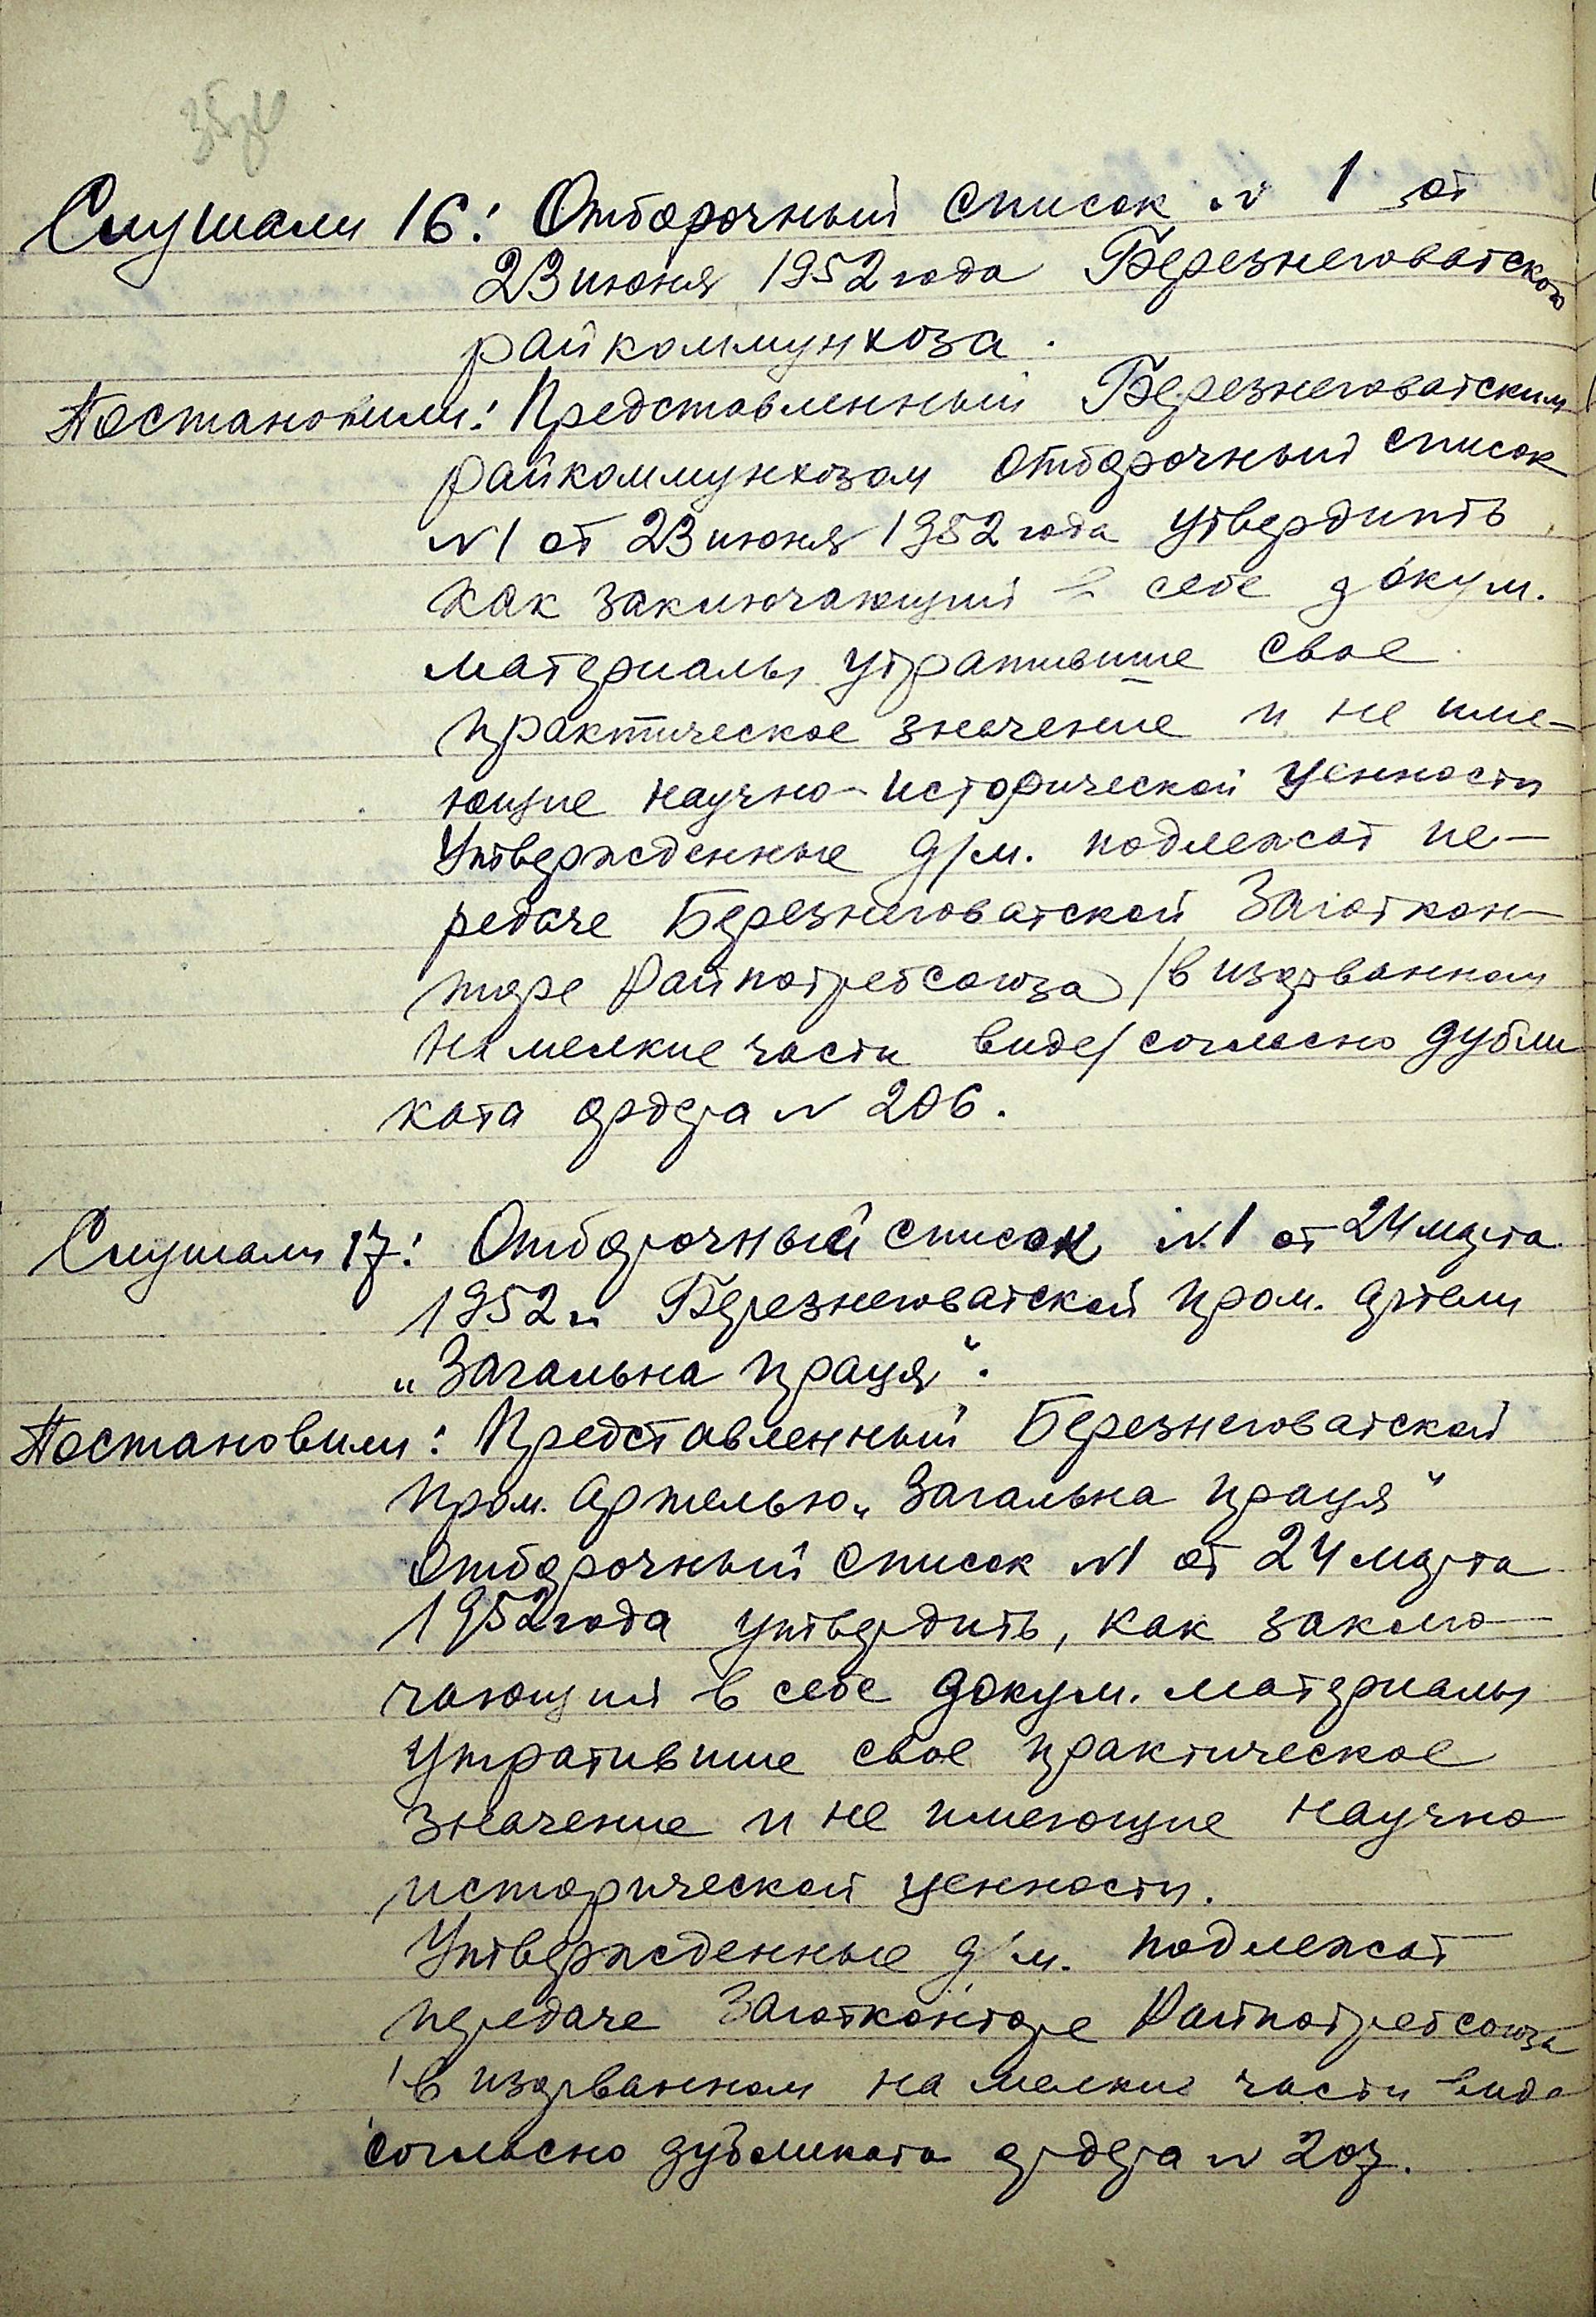 Слушали 16: Отборочный список № 1 от
23 июня 1952 года Березнеговатского
райкоммунхоза.
Постановили: Представленный Березнеговатским
райкоммунхозом отборочный список
№ 1 от 23 июня 1952 года утвердить
как заключающий в себе докум.
материалы утратившие свое
практическое значение и не име-
ющие научно-исторической ценности
Утвержденные д/м. подлежат пе-
редаче Березнеговатской Заготкон-
торе Райпотребсоюза /в изорванном
на мелкие части виде/ согласно дубли
ката ордера № 206.
Слушали 17: Отборочный список № 1 от 24 марта
1952 г. Березнеговатской пром. артели
„Загальна праця“.
Постановили: Представленный Березнеговатской
пром. артелью „Загальна праця“
отборочный список № 1 от 24 марта
1952 года утвердить, как заклю-
чающий в себе докум. материалы
утратившие свое практическое
значение и не имеющие научно
исторической ценности.
Утвержденные д/м. подлежат
передаче Заготконторе Райпотребсоюза
/в изорванном на мелкие части виде
согласно дубликата ордера № 207.